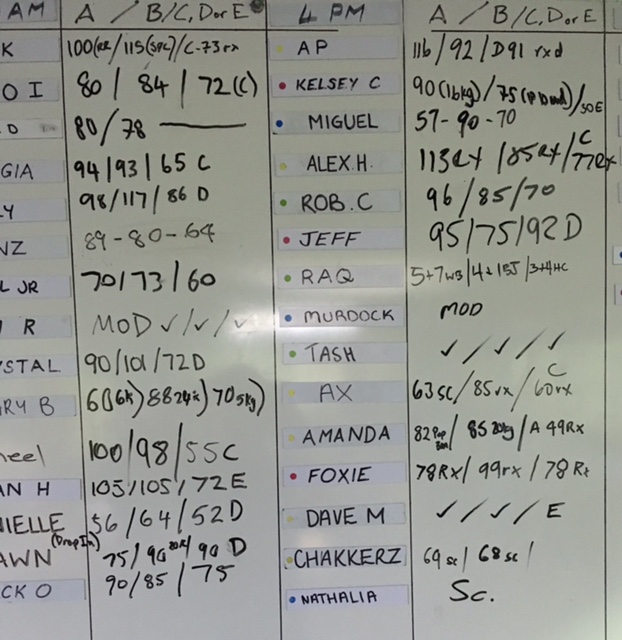 AM A / B/C, D or E 4 PM A / B/C, D or E
K 100(RX)/115(SPC)/C-73rx AP 116/92/D91 rxd
O I 80 / 84 / 72(C) KELSEY C 90(16kg)/75(P Band)/50E
D 80/78 MIGUEL 57-90-70
GIA 94/93/65 C ALEX.H. 113RX/85RX/77RX C
Y 98/117/86 D ROB.C 96/85/70
NZ 89-80-64 JEFF 95/75/92D
L JR 70/73/60 RAQ 5+7WB/4+15J/3+4HC
R MOD ✓/✓/✓ MURDOCK MOD
STAL 90/101/72D TASH ✓/✓/✓
RY B AX 63sc/85rx/60rx C
heel 100/98/55C AMANDA 82/85 20kg/A 49Rx
AN H 105/105/72E FOXIE 78RX/99rx/78Rx
NIELLE 56/64/52D DAVE M ✓/✓/E
AWN (Drop In) 75/90/90 D CHAKKERZ 69sc/68sc/
CK O 90/85/75 NATHALIA Sc.